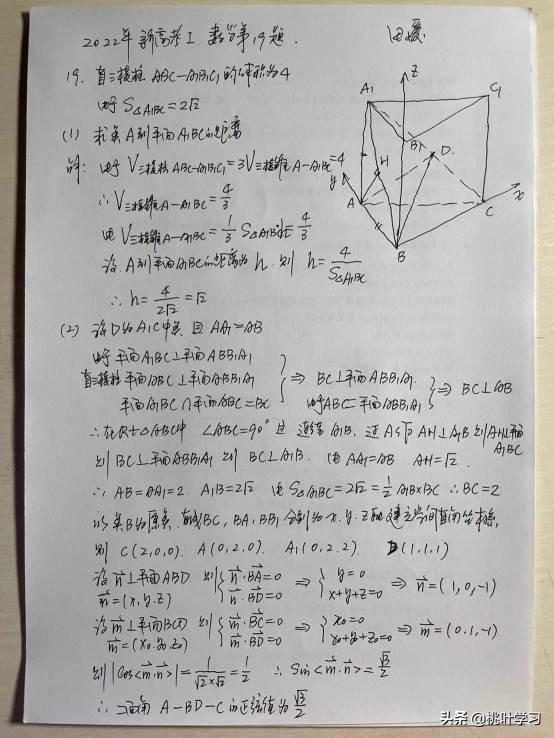 2022年新高考I 数学第19题.
19. 直三棱柱 ABC-A₁B₁C₁ 的体积为4
S△A₁BC=2√2
(1) 求点A到平面A₁BC的距离
解: 由于 V三棱柱ABC-A₁B₁C₁=3V三棱锥A-A₁BC=4
∴ V三棱锥A-A₁BC=4/3
由 V三棱锥A-A₁BC=1/3 S△A₁BC·h=4/3
设A到平面A₁BC的距离为h. 则 h=4/S△A₁BC
∴ h=4/(2√2)=√2
(2) 设D为A₁C中点 且 AA₁=AB
由于 平面A₁BC⊥平面ABB₁A₁
直三棱柱 平面ABC⊥平面ABB₁A₁ ⇒ BC⊥平面ABB₁A₁. ⇒ BC⊥AB
平面A₁BC∩平面ABC=BC 平面ABB₁A₁
∴在Rt△ABC中 ∠ABC=90° 连结A₁B. 过A AH⊥A₁B 则AH⊥平面A₁BC
则 BC⊥平面ABB₁A₁ 则 BC⊥A₁B. 由 AA₁=AB AH=√2.
∴ AB=AA₁=2. A₁B=2√2 由 S△A₁BC=2√2=1/2 A₁B×BC ∴ BC=2
以点B为原点. BC, BA, BB₁ 分别为x. y. z轴建立空间直角坐标系,
则 C(2,0,0). A(0,2,0). A₁(0,2,2). D(1,1,1)
设n⊥平面ABD. 则 {n·BA=0 n·BD=0 ⇒ {y=0 x+y+z=0 ⇒ n=(1,0,-1)
n=(x,y,z)
设m⊥平面BCD 则 {m·BC=0 m·BD=0 ⇒ {x₀=0 x₀+y₀+z₀=0 ⇒ m=(0,1,-1)
m=(x₀,y₀,z₀)
则 |cos<m·n>|=1/(√2×√2)=1/2 ∴ Sin<m·n>=√3/2
∴ 二面角 A-BD-C 的正弦值为 √3/2
z
A₁
C₁
B₁
D
H
y
A
C
x
B
头条 @桃叶学习